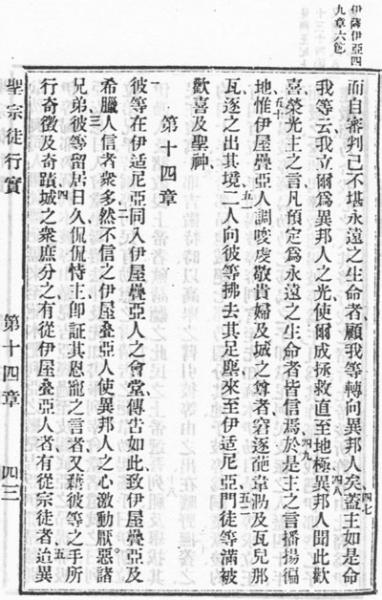 伊薩伊亞四
九章六節
而自審判己不堪永遠之生命者、顧我等轉向異邦人矣四七蓋主如是命
我等云我立爾爲異邦人之光使爾成拯救直至地極四八異邦人聞此歡
喜、榮光主之言、凡預定爲永遠之生命者皆信焉、四九於是主之言播揚徧
地五十惟伊屋疊亞人調唆虔敬貴婦及城之尊者窘逐葩韋泐及瓦兒那
瓦、逐之出其境、五一二人向彼等拂去其足塵來至伊适尼亞、五二門徒等滿被
歡喜及聖神、
第十四章
一彼等在伊适尼亞同入伊屋疊亞人之會堂、傳言如此致伊屋疊亞及
希臘人信者衆多、二然不信之伊屋叠亞人使異邦人之心激動厭惡諸
兄弟、三彼等留居日久侃侃恃主、卽証其恩寵之言者、又藉彼等之手所
行奇徵及奇蹟、四城之衆庶分之有從伊屋叠亞人者有從宗徒者、五迨異
聖宗徒行實 第十四章 四三